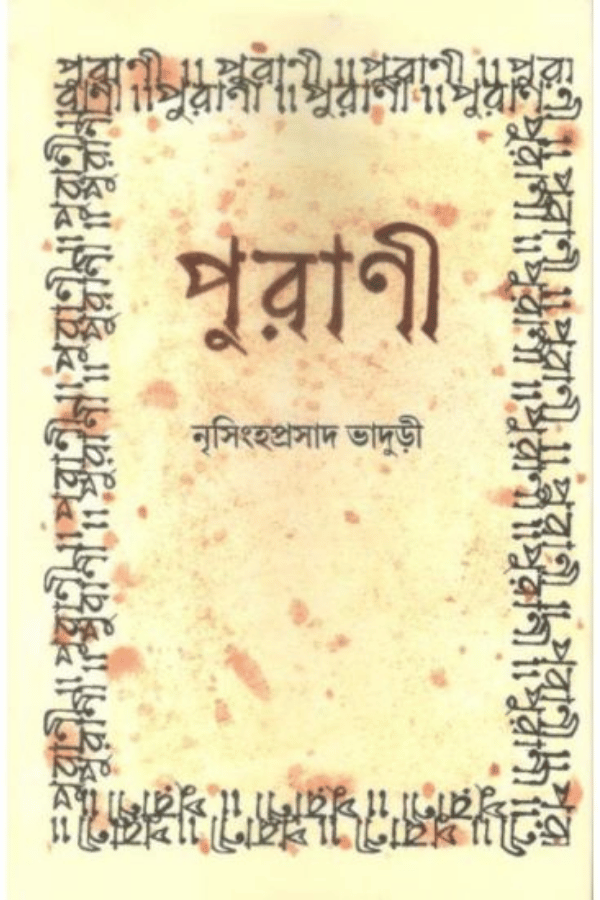 পুরাণী ॥ পুরাণী ॥ পুরাণী ॥ পুরা
রাণী ॥ পুরাণী ॥ পুরাণী ॥ পুরাণ
পুরাণী
নৃসিংহপ্রসাদ ভাদুড়ী
পুরাণী ॥ পুরাণী ॥ পুরাণী ॥ পুরাণী ॥
পুরাণী ॥ পুরাণী ॥ পুরাণী ॥ পুরাণী ॥
ণী ॥ পুরাণী ॥ পুরাণী ॥ পুরাণী ॥ পুরাণী ॥ পুরা
পুরাণী ॥ পুরাণী ॥ পুরাণী ॥ পুরাণী ॥ পুরাণী ॥
পুরাণী ॥ পুরাণী ॥ পুরাণী ॥
ণী ॥ পুরাণী ॥ পুরাণী ॥ পুরাণী ॥